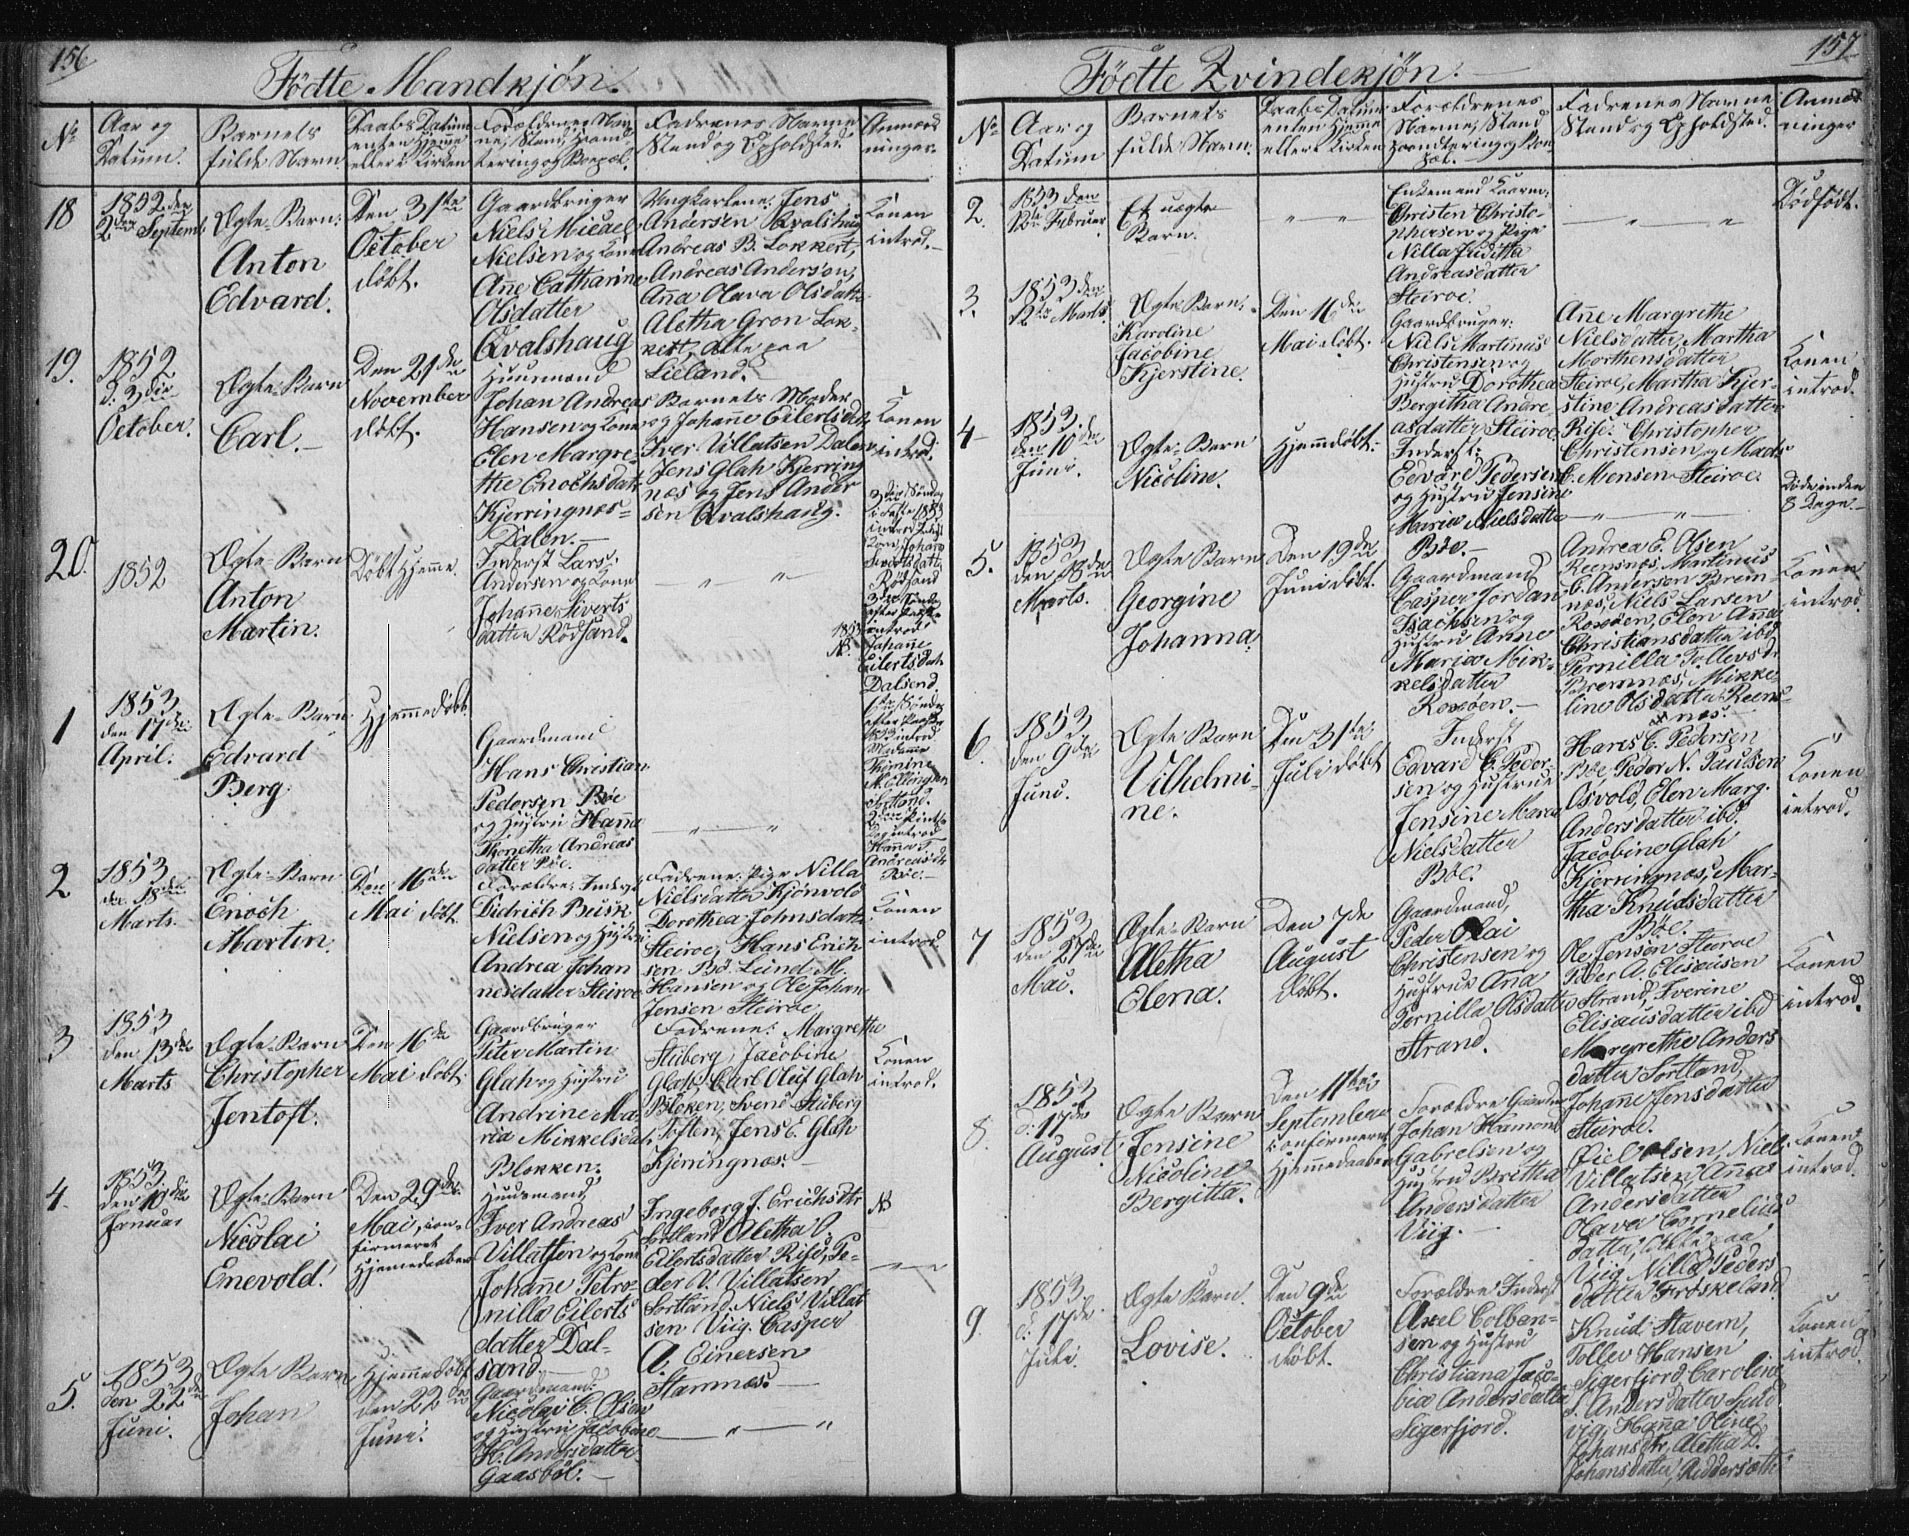 156
Fødte Mandkjøn.
No
Aar og
Datum.
Barnets
fulde Navn
Daabs Datum
enten Hjemme
eller i Kirken
Forældrenes Nav
ne, Stand, Haand
tering og Bopæl.
Fadrenes Navne
Stand og Opholdsted.
Anmærk
ninger.
18
1852 den
2den Septemb
Ægte-Barn:
Anton
Edvard.
Den 31te
October
døbt.
Gaardbruger
Niels Micael
Nielsen og Kone
Ane Catharine
Olsdatter
Qvalshaug
Ungkarlene: Jens
Andersen Kvalshaug
Andreas B. Lokkert,
Andreas Anderson,
Anna Olava Olsdatt
Aletha Gron Lok-
kert, alle paa
Lieland.
Konen
introd.
19.
1852
d. 3die
October.
Ægte-Barn
Carl.
Den 21de
November
døbt.
Huusmand
Johan Andreas
Hansen og Kone
Elen Margre-
the Enochsdatt
Kjerringnes-
Dalen.
Barnets Moder
og Johanne Eilertsdtr
Iver Villatsen Dalen
Jens Glah Kjerring
næs og Jens Ander
sen Qvalshaug.
Konen
introd.
20.
1852
Ægte-Barn
Anton
Martin.
Døbt Hjemme.
Inderst Lars
Andersen og Kone
Johanne Siverts
datter Rødsand.
" "
3die Søndag
i Faste 1853
introd.
Kone Johane
Sivertsdatt
Rødsand
3die Sønda
efter Paaske
introd.
1853
NB.
Johanne
Eilertsdatt
Dalsend.
1
1853
den 17de
April.
Ægte-Barn
Edvard
Berg.
Hjemmedøbt.
Gaardmand
Hans Christian
Pedersen Bøe
og Hustru Hanna
Thonetha Andreas
datter Bøe.
" "
1ste Sønda
efter Paaske
1853 introd.
Madamme
Sortland.
2den Pintse
Dag introd
Hanna T.
Andreasdtr
Bøe.
2
1853
den 18de
Marts.
Ægte-Barn
Enoch
Martin.
Den 16den
Mai døbt.
Forældre: Inderst
Didrich Busk
Nielsen og Hustru
Andrea Johan
nesdatter Steiroe
Fadrene: Pige Nilla
Nielsdatter Kjønvold
Dorothea Johnsdatt
Steiroe, Hans Erich
sen Bø. Leind M.
Hansen og Ole Johan
Jensen Steiroe
Konen
introd.
3
1853
den 13de
Marts
Ægte-Barn
Christopher
Jentoft.
Den 16de
Mai døbt.
Gaardbruger
Peter Martin
Glah og Hustru
Andrine Ma-
ria Mikkelsdatt
Blokken.
Fadrene: Margrethe
Stuberg, Jacobine
Glah, Carl Oluf Glah
Bloken, Svend Stuberg
Toften, Jens E. Glah
Kjerringnæs.
Konen
introd.
4.
1853
den 10de
Januar
Ægte-Barn
Nicolai
Enevold.
Den 29de
Mai, con-
firmeret
Hjemedaaben
Huusmand
Iver Andreas
Villatsen og Kone
Johanne Petro
nilla Eilerts
datter Dal-
sand
Ingeborg J. Erichsdtr
Sortland Aletha O.
Eilertsdatter Risø, Pe-
der V. Villatsen
Sortland. Niels Villat
sen Viig. Casper
A. Einersen
Stamnæs.
NB
5.
1853
Den 22de
Juni.
Ægte Barn
Johan
Hjemmedøbt
den 22de
Juni.
Gaardmand:
Nicolai C. Olsen
og Hustru Jacobine
H. Andersdatter
Gaasbøl.
" "
157
Fødte Qvindekjøn.
No
Aar og
Datum
Barnets
fulde Navn.
Daabs Datum
enten Hjemme
eller i Kirken
Forældrenes
Navne, Stand
Haandtering og Bo
pæl.
Fadrenes Navne
Stand og Opholdsted.
Anmærk
ninger
2.
1853 den
Februar
Et uægte
Barn.
" "
Enkemand
Christen Christo-
phersen og Pige
Nilla Juditha
Andreasdatter
Steiroe.
" "
Dødfødt.
3.
1853 den
12te Marts.
Ægte Barn:
Karoline
Jacobine
Kjerstine.
Den 16de
Mai døbt.
Gaardbruger:
Niels Martinus
Christensen og
Hustru Dorothea
Bergitha Andre
asdatter Steiroe.
Ane Margrethe
Nielsdatter, Martha
Morthensdatter
Steiroe, Martha Kjer-
stine Andreasdatter
Risø. Christopher
Christensen og Mads
C. Monsen Steiroe.
Konen
introd.
4
1853.
den 10de
Juni.
Ægte-Barn
Nicoline.
Hjemmdøbt.
Inderst:
Edvard Pedersen
og Hustru Jensine
Maria Nielsdatte
Bøe.
" "
Døde inden
8 Dage.
5.
1853
den 18de
Marts.
Ægte Barn
Georgine
Johanna.
Den 19de
Juni døbt.
Gaardmand
Casper Jordan
Isachsen og
Hustru Anne
Maria Mik-
kelsdatter
Roxøen.
Andrea E. Olsen
Reensnæs, Martinus
C. Andersen Brem-
næs, Niels Larsen
Roxøen, Elen Anna
Christiansdatter ibd.
Pernilla Tollevsdr
Bremnæs, Mikke-
line Olsdatter Reens-
næs.
Konen
introd.
6.
1853
den 9de
Juni.
Ægte Barn
Vilhelmi-
ne.
Den 31te
Juli døbt
Inderst
Edvard C. Peder-
sen og Hustrue
Jensine Maria
Nielsdatter
Bøe.
Hans C. Pedersen
Bøe, Peder N. Paulsen
Osvold, Elen Marg.
Andersdatter ibd.
Jacobine Glah
Kjerringnæs, Mar-
tha Knudsdatter
Bøe.
Konen
introd.
7
1853
den 27de
Mai.
Ægte-Barn
Aletha
Elena.
Den 7de
August
døbt.
Gaardmand,
Peder Olai
Christensen og
Hustrue Ana
Pernilla Olsdatter
Strand.
Ole Jensen Steiroe
Peder A. Elisæusen
Strand, Iverine
Elisæusdatter ibd
Margrethe Anders
datter Sortland,
Johane Jensdatter
Steiroe.
Konen
introd.
8.
1853
d. 17de
August.
Ægte Barn
Jensine
Nicoline
Bergitta.
Den 11te
September
confirmeret
Hjemmedaaben
Forældre Gaardm
Johan Hamond
Gabrielsen og
Hustru Beritha
Andersdatter
Viig.
Eiel Olsen, Niels
Villatsen, Anna
Andersdatter
Olava Cornelius
datter, Alle paa
Viig, Nilla Peders
datter Frøskeland.
Konen
introd.
9.
1853.
d. 17de
Juli.
Ægte Barn.
Lovise.
Den 9de
October
døbt.
Forældre Inderst
Axel Colben-
sen og Hustru
Christiana Jaco-
bia Andersdatter
Sigerfjord.
Knud Stavem,
Tollev Hansen
Sigerfjord, Caroline
S. Andersdatter Suld
vig, Hana Oline
Johansdtr, Aletha D.
Johansdatter, Reddersæth
Konen
introd.